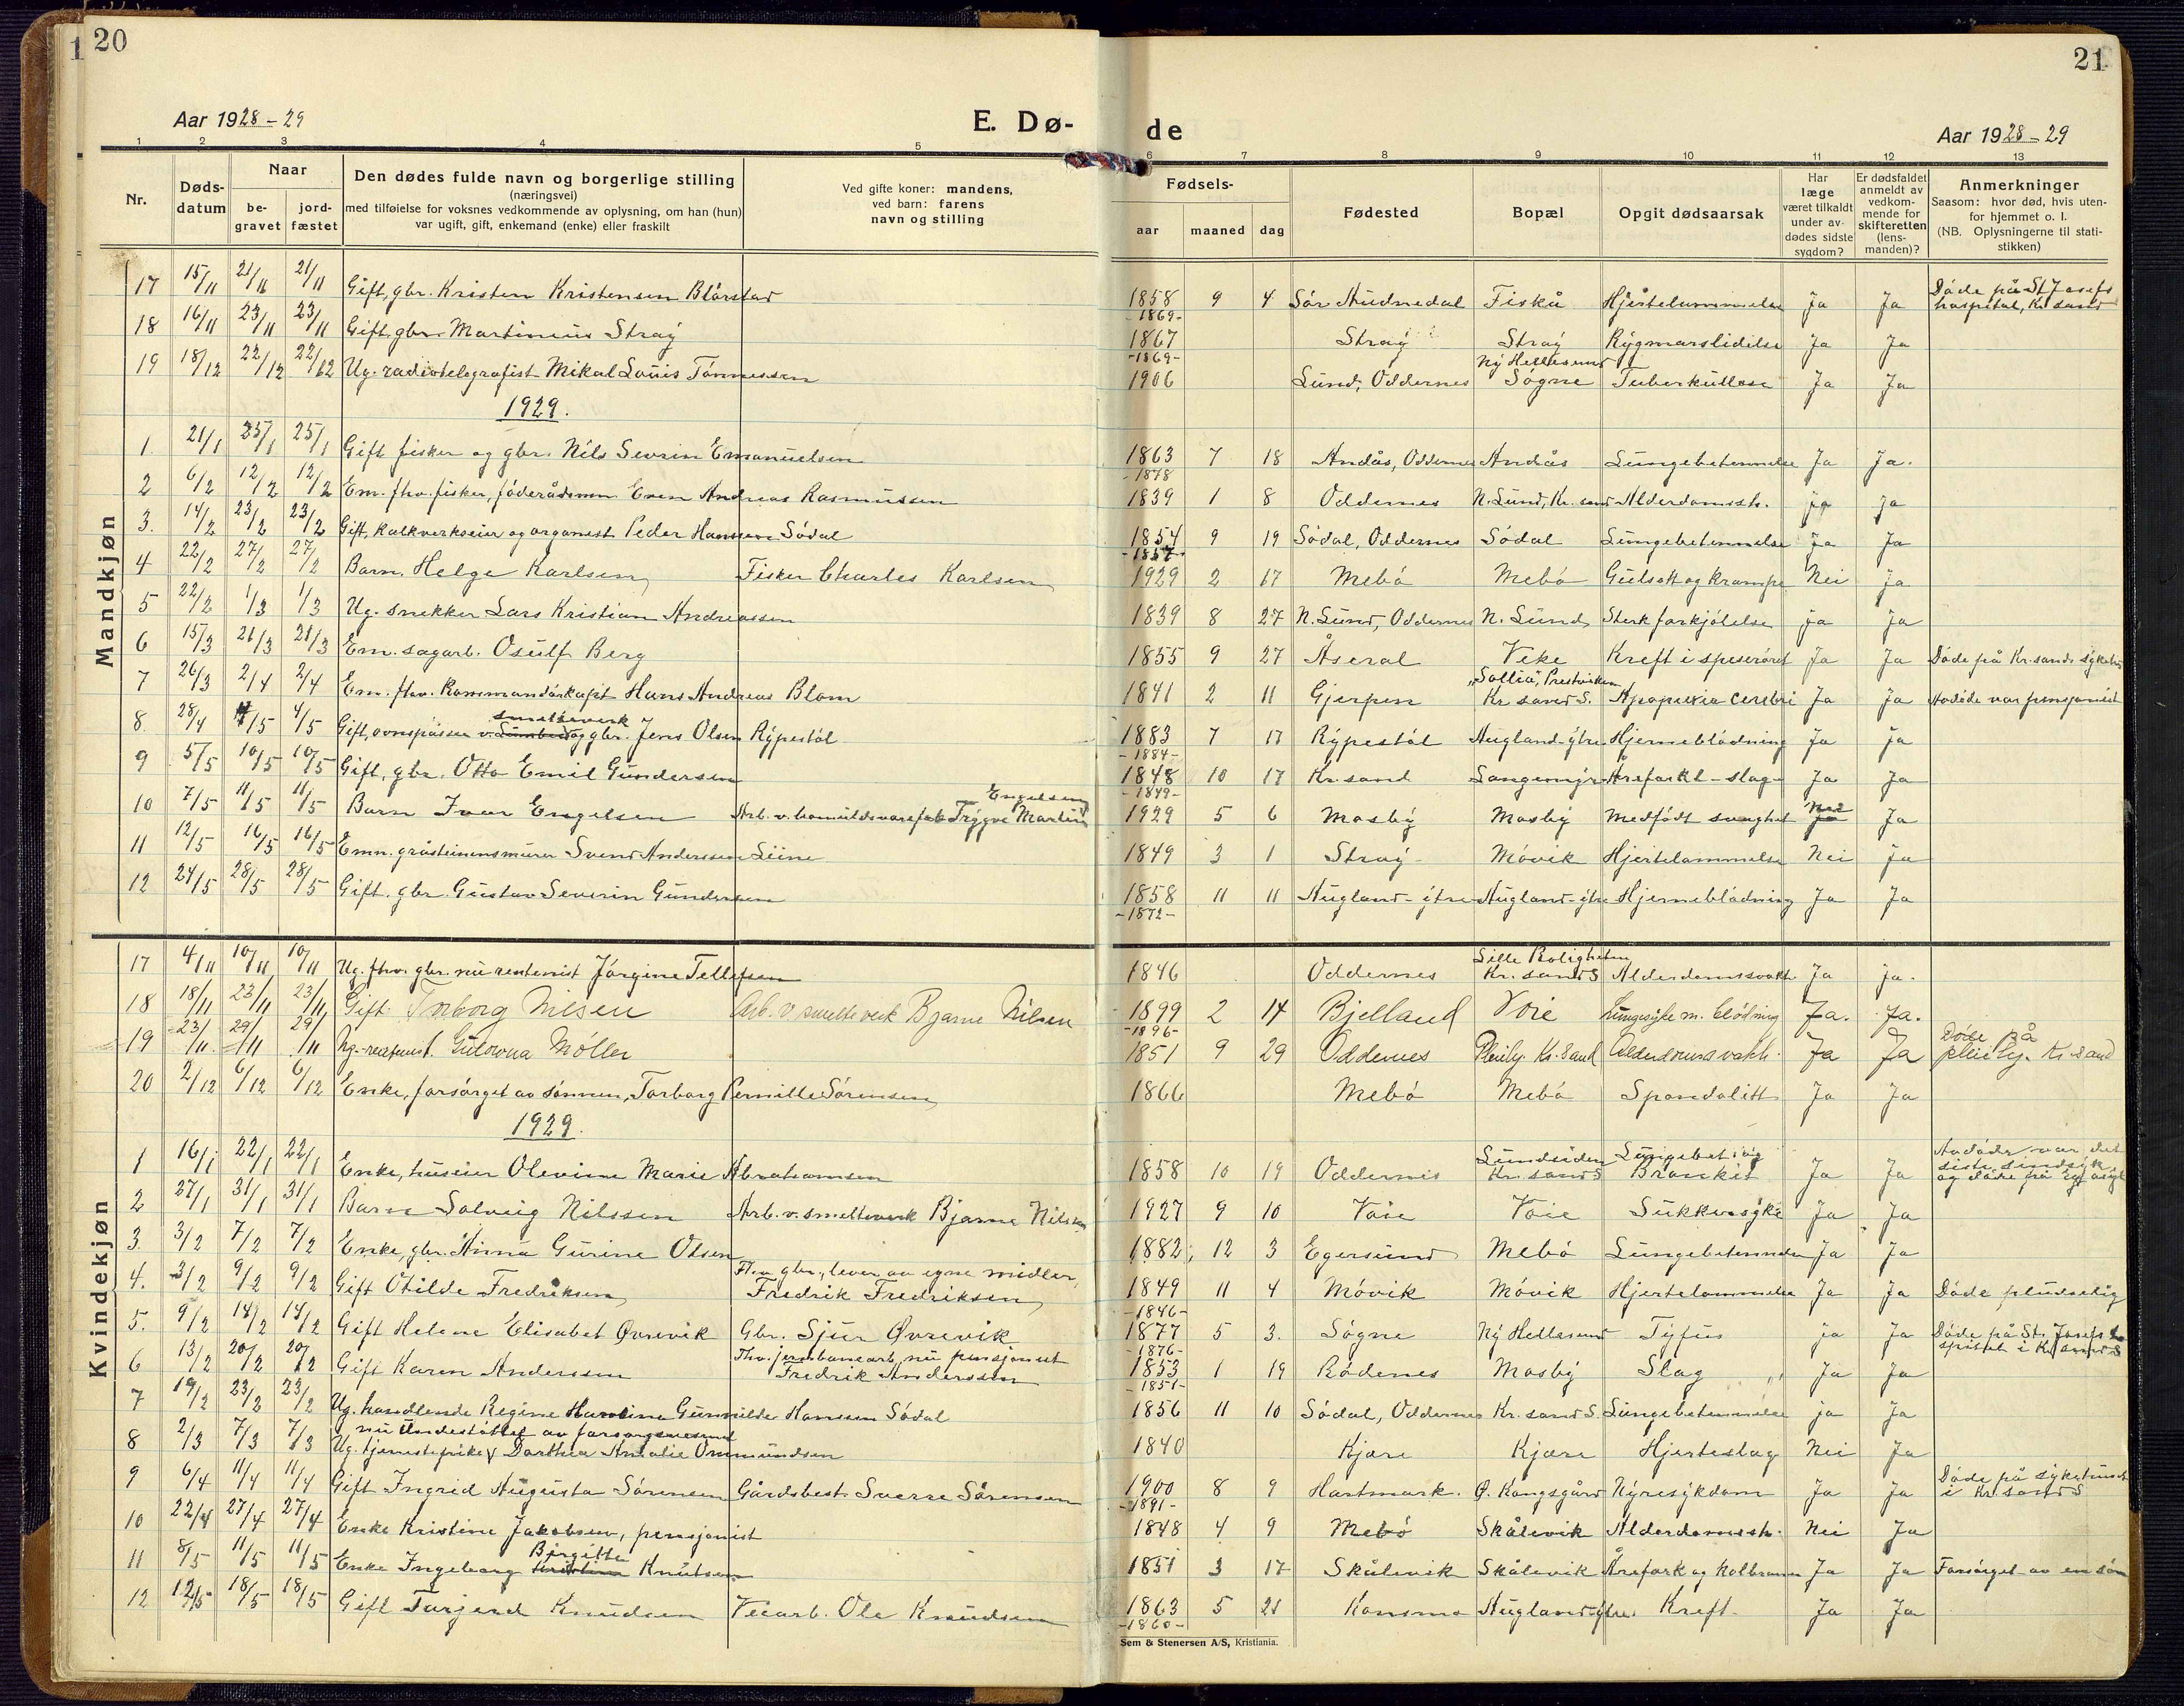 20
21
Aar 1928-29
E. Dø-
de
Aar 1928-29
1 2 3 4 5 6 7 8 9 10 11 12 13
Nr.
Døds-
datum
Naar
be-
gravet
jord-
fæstet
Den dødes fulde navn og borgerlige stilling
(næringsvei)
med tilføielse for voksnes vedkommende av oplysning, om han (hun)
var ugift, gift, enkemand (enke) eller fraskilt
Ved gifte koner: mandens,
ved barn: farens
navn og stilling
Fødsels-
aar maaned dag
Fødested
Bopæl
Opgit dødsaarsak
Har
læge
været tilkaldt
under av-
dødes sidste
sygdom?
Er dødsfaldet
anmeldt av
vedkom-
mende for
skifteretten
(lens-
manden)?
Anmerkninger
Saasom: hvor død, hvis uten-
for hjemmet o. l.
(NB. Oplysningerne til stati-
stikken)
Mandkjøn
17 15/11 21/11 21/11 Gift, gbr. Kristen Kristensen Blårstad 1858 9 4 Sör Audnedal Fiskå Hjertelammelse Ja Ja Döde på St Josefs
-1869- hospital, Kr.sand
18 16/11 23/11 23/11 Gift, gbr. Martinius Stray 1867 Stray Stray Rygmarslidelse Ja Ja
-1869- Ny Hellesund
19 18/12 22/12 22/12 Ug. radiotelegrafist Mikal Louis Tönnessen 1906 Lund, Oddernes Sögne Tuberkullose Ja Ja
1929.
1 21/1 25/1 25/1 Gift fisker og gbr. Nils Severin Emanuelsen 1863 7 18 Andås, Oddernes Andås Lungebetennelse Ja Ja.
-1878
2 6/2 12/2 12/2 Em. fhv. fisker, föderådsmn Even Andreas Rasmussen 1839 1 8 Oddernes N. Lund, Kr. sand Alderdomssv. ja Ja
3. 14/2 23/2 23/2 Gift, kalkverkseier og organist Peder Hansen Södal 1854 9 19 Södal, Oddernes Södal Lungebetennelse Ja Ja
-1857-
4 22/2 27/2 27/2 Barn. Helge Karlsen Fisker Charles Karlsen 1929 2 17 Mebö Mebö Gulsott og krampe Nei ja
5 22/2 1/3 1/3 Ug. snekker Lars Kristian Andreassen 1839 8 27 N. Lund, Oddernes N. Lund, Sterk forkjölelse ja ja
6 15/3 21/3 21/3 Em. sagarb. Osulf Berg 1855 9 27 Åseral Veke Kreft i spiseröret Ja Ja Döde på Kr.sands sykehus
"Sollia", Prestviken
7 26/3 2/4 2/4 Em. fhv. kommandörkapt Hans Andreas Blom 1841 2 11 Gjerpen Kr sand S. Apoplexia cerebri Ja Ja Avdöde var pensjonist
smelteverk
8. 28/4 4/5 4/5 Gift, ovnspasser v. og gbr. Jens Olsen Rypestöl 1883 7 17 Rypestöl Augland-ytre Hjerneblödning Ja ja
-1884-
9 5/5 10/5 10/5 Gift, gbr. Otto Emil Gundersen 1848 10 17 Kr.sand Langemyr Årefarkt-slag Ja Ja
-1849-
Engelsen
10 7/5 11/5 11/5 Barn Ivar Engelsen Arb. v. bomuldsvarefab Trygve Martin 1929 5 6 Mosby Mosby Medfödt svaghet Nei Ja
11 12/5 16/5 16/5 Emn. gråsteinsmurer Svend Anderssen Liine 1849 3 1 Stray Mövik Hjertelammelse Nei ja
12 24/5 28/5 28/5 Gift. gbr. Gustav Severin Gundersen 1858 11 11 Augland-ytre Augland-ytre Hjerneblödning Ja Ja
-1872-
Kvindekjøn
Lille Roligheten
17 4/11 10/11 10/11 Ug. fhv. gbr. nu rentenist Jörgine Tellefsen 1846 Oddernes Kr. sand S Alderdomssvakh Ja ja.
18 18/11 23/11 23/11 Gift Inborg Nilsen Arb. v smelteverk Bjarne Nilsen 1899 2 14 Bjelland Voie Lungesyke m. blödning Ja. Ja.
-1896-
Döde på
19 23/11 29/11 29/11 Ug. rentenist. Gulowna Møller 1851 9 29 Oddernes Pleihj. Kr. sand Alderdomsvakh. Ja Ja pleihj. Kr. sand
20 2/12 6/12 6/12 Enke, forsörget av sönnen, Torborg Pernille Sörensen 1866 Mebö Mebö Spondolitt Ja Ja
1929.
Lundsiden Lungebet. i vig Avdöde var det
1 16/1 22/1 22/1 Enke, huseier Olevine Marie Abrahamsen 1858 10 19 Oddernes Kr. sand S Bronkit Ja Ja siste sindsyk
og döde på Eg asyl
2 27/1 31/1 31/1 Barn Solveig Nilssen Arb. v. smelteverk Bjarne Nilsen 1927 9 10 Voie Voie Sukkersyke Ja Ja
3. 3/2 7/2 7/2 Enke, gbr. Anna Gurine Olsen 1882 12 3 Egersund Mebö Lungebetennelse Ja Ja
Fhv gbr., lever av egne midler,
4. 3/2 9/2 9/2 Gift Otilde Fredriksen Fredrik Fredriksen 1849 11 4 Mövik Mövik Hjertelammelse Ja Ja Döde pludselig
-1846-
5. 9/2 14/2 14/2 Gift Helene Elisabet Øvrevik Gbr. Sjur Øvrevik 1877 5 3. Sögne Ny Hellesund Tyfus ja Ja Döde på St. Josefs ho
-1876- spital i Kr.sand S
Fhv. jernbanearb, nu pensjonist
6 13/2 20/2 20/2 Gift Karen Anderssen Fredrik Anderssen 1853 1 19 Rödenes Mosby Slag Ja Ja
-1851-
7 19/2 23/2 23/2 Ug. handlende Regine Gunnilde Hanssen Södal 1856 11 10 Södal, Oddernes Kr. sand S. Lungebetennelse ja Ja
nu understöttet av forsorgsvesenet
8 2/3 7/3 7/3 Ug. tjenestepike Dorthea Amalie Ommundsen 1840 Kjære Kjære Hjerteslag Nei Ja
9 6/4 11/4 11/4 Gift Ingrid Augusta Sörensen Gårdsbest. Sverre Sörensen 1900 8 9 Hartmark. Ø. Kongsgård Nyresykdom Ja Ja Döde på sykehuset
-1891- i Kr. sand S
10 22/4 27/4 27/4 Enke Kristine Jakobsen, pensjonist 1848 4 9 Mebö Skålevik Alderdomssv. Nei Ja
Birgitte
11 8/5 11/5 11/5 Enke Ingeborg Knutsen 1851 3 17 Skålevik Skålevik Årefork og Kolbrann Ja Ja Forsörget av en sön
12 12/5 18/5 18/5 Gift Torjerd Knudsen Veiarb. Ole Knudsen 1863 5 21 Konsmo Augland-ytre. Kreft Ja Ja
-1860-
Sem & Stenersen A/S, Kristiania.